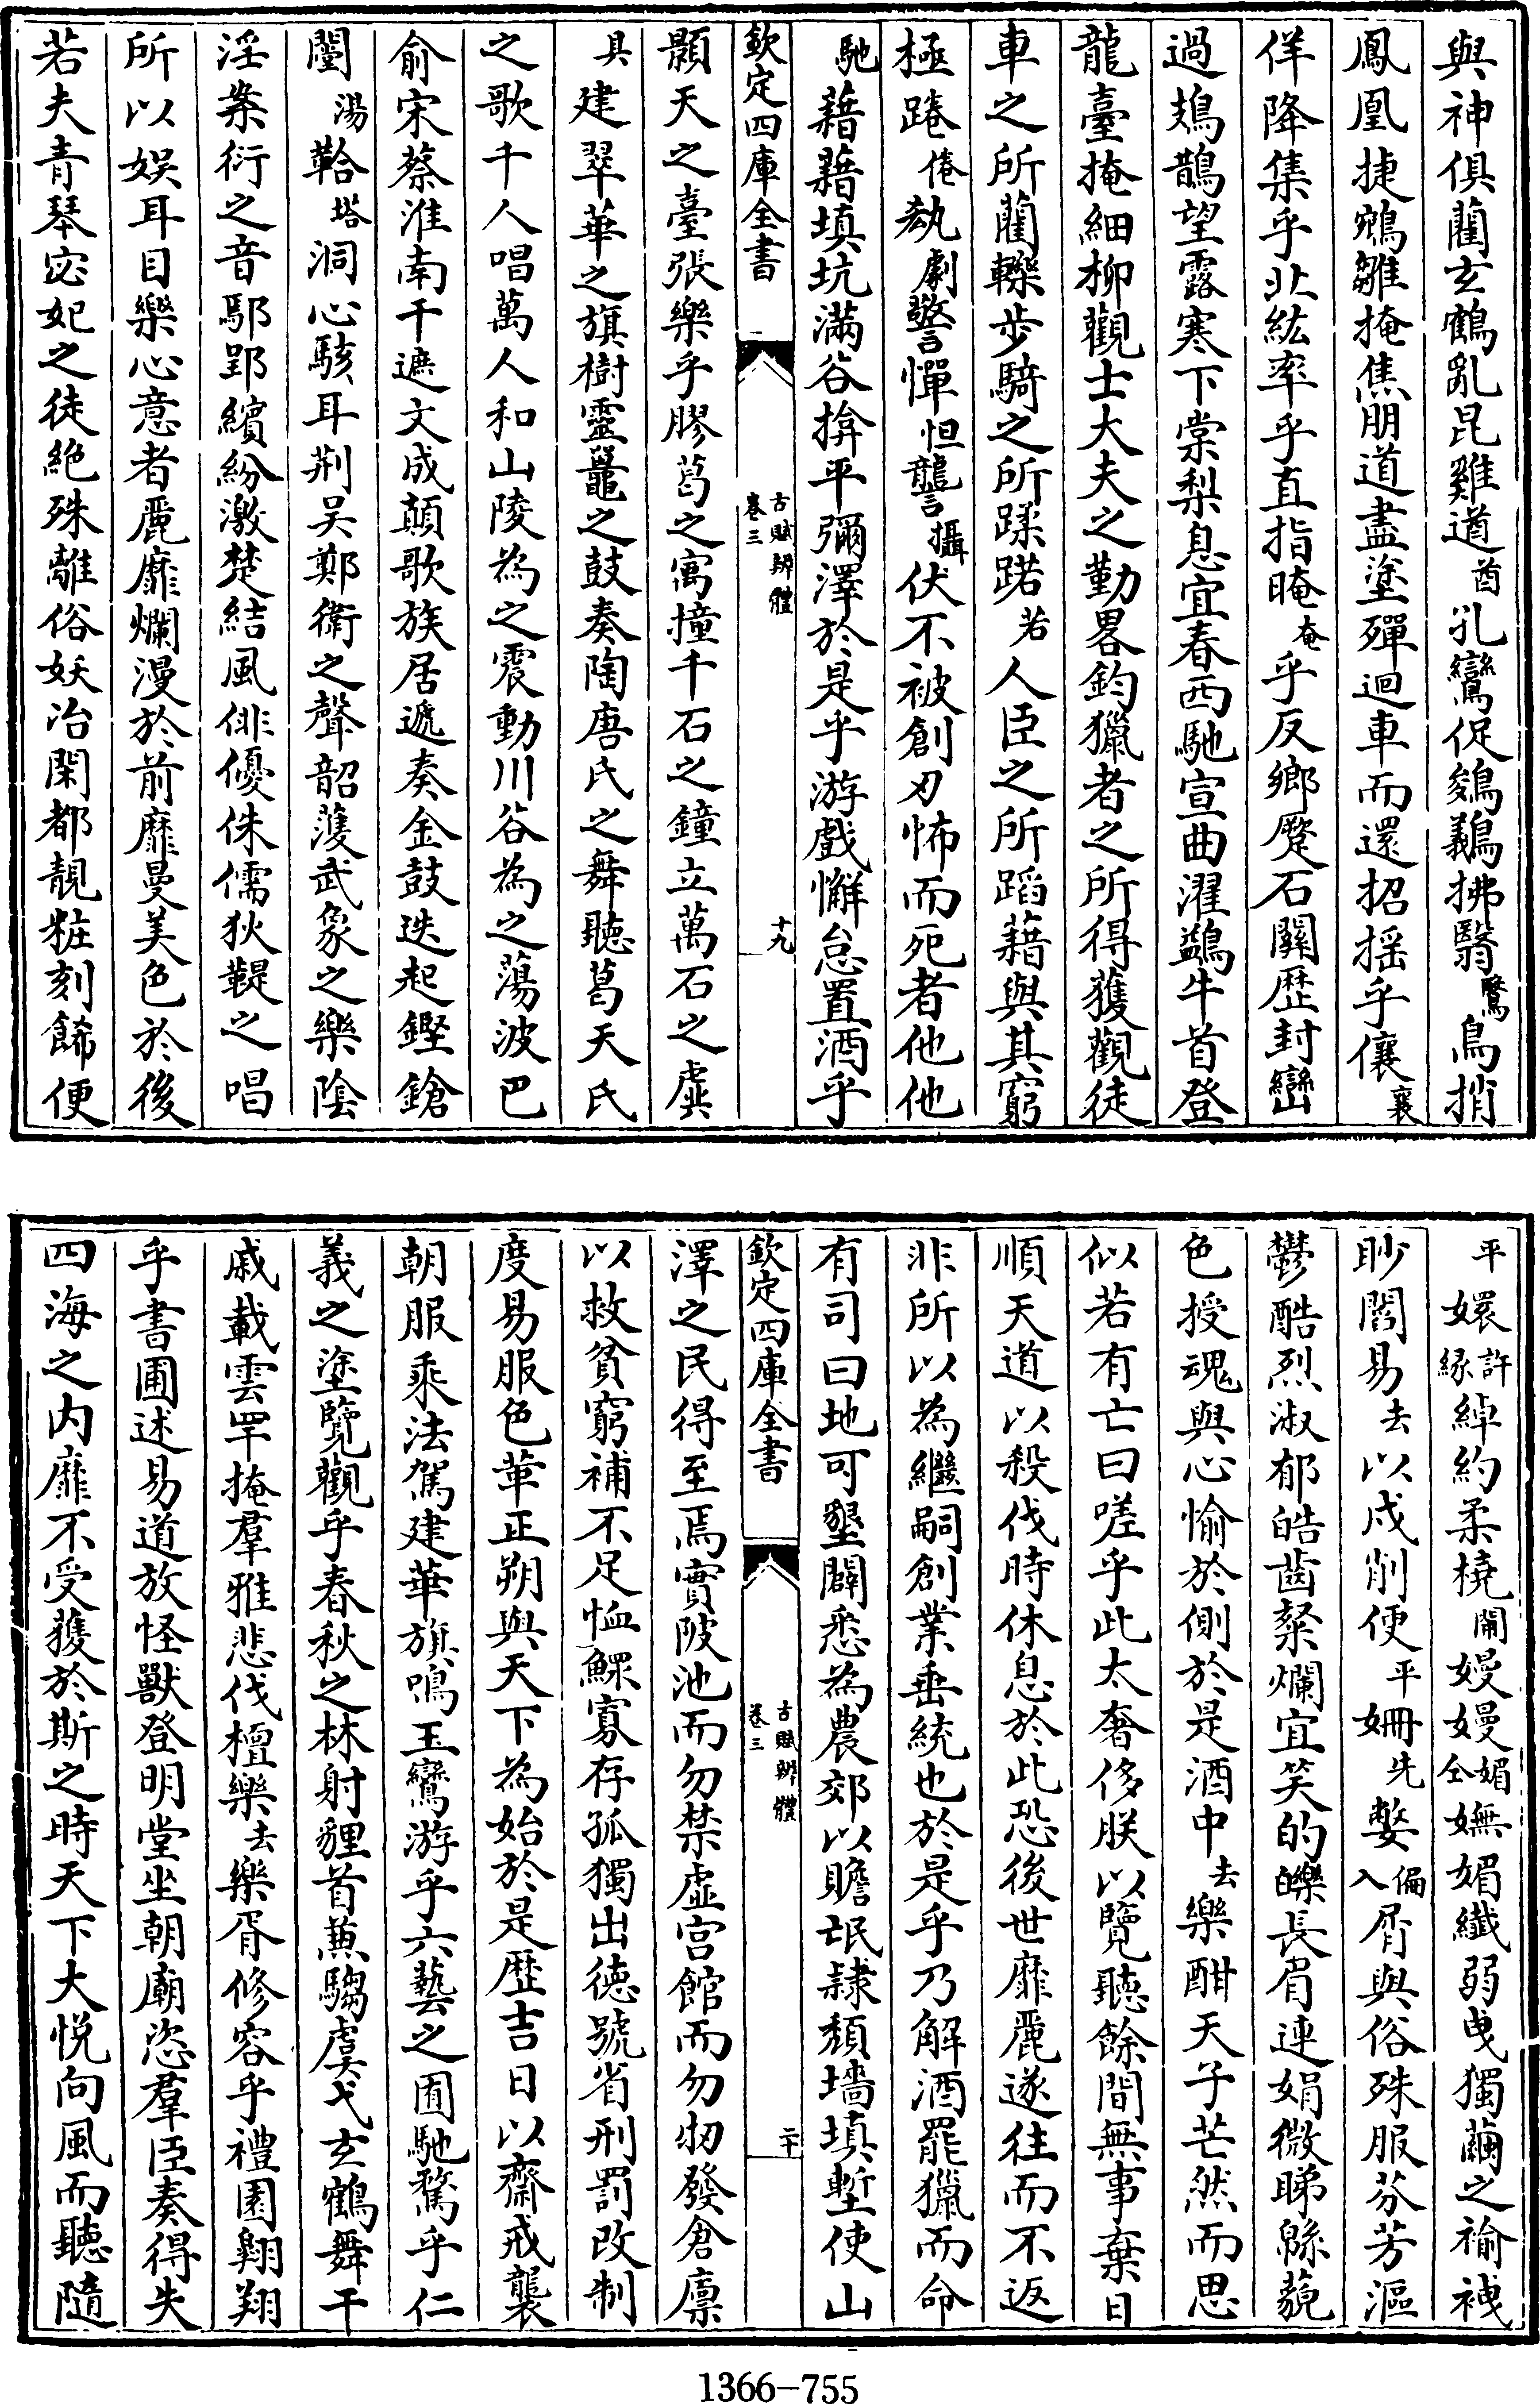 與神俱藺玄鶴亂昆雞遒酋孔鸞促鵕鸃拂翳鷖鳥捎
鳳凰捷鵷雛掩焦朋道盡塗殫迴車而還招搖乎儴襄
佯降集乎北紘率乎直指晻奄乎反鄉蹷石關歴封巒
過鳷鵲望露寒下棠梨息宜春西馳宣曲濯鷁牛首登
龍臺掩細柳觀士大夫之勤畧鈞獵者之所得獲觀徒
車之所藺轢步騎之所蹂踖若人臣之所蹈藉與其窮
極踡倦𠊬劇驚憚怛讋攝伏不被創刃怖而死者他他
馳藉藉填坑滿谷揜平彌澤於是乎游戲懈怠置酒乎
欽定四庫全書 古賦辯體 卷三 十九
顥天之臺張樂乎膠葛之㝢撞千石之鐘立萬石之虡
具建翠華之旗樹靈鼉之鼓奏陶唐氏之舞聽葛天氏
之歌千人唱萬人和山陵為之震動川谷為之蕩波巴
俞宋蔡淮南干遮文成顛歌族居遞奏金鼓迭起鏗鎗
闛湯鞈塔洞心駭耳荆吴鄭衛之聲韶濩武象之樂陰
淫案衍之音鄢郢繽紛激楚結風俳優侏儒狄鞮之唱
所以娛耳目樂心意者麗靡爛漫於前靡曼美色於後
若夫青琴宓妃之徒絶殊離俗妖冶閑都靚糚刻餙便
平嬛許緣綽約柔橈閙嫚嫚媚仝嫵媚纎弱曳獨繭之褕袣
眇閻易去以戍削便平姍先嫳偏入屑與俗殊服芬芳漚
鬱酷烈淑郁皓齒粲爛宜笑的皪長眉連娟微睇緜藐
色授魂與心愉於側於是酒中去樂酣天子芒然而思
似若有亡曰嗟乎此太奢侈朕以覽聽餘間無事棄日
順天道以殺伐時休息於此恐後世靡麗遂往而不返
非所以為繼嗣創業垂統也於是乎乃解酒罷獵而命
有司曰地可墾闢悉為農郊以贍氓隸頹墻填塹使山
欽定四庫全書 古賦辯體 卷三 二十
澤之民得至焉實陂池而勿禁虚宫館而勿仞發倉廪
以救貧窮補不足恤鰥寡存孤獨出德號省刑罰改制
度易服色革正朔與天下為始於是歴吉日以齋戒襲
朝服乘法駕建華旗鳴玉鸞游乎六藝之囿馳騖乎仁
義之塗覽觀乎春秋之林射貍首兼騶虞弋玄鶴舞干
戚載雲䍐掩羣雅悲伐檀樂去樂胥修容乎禮園翱翔
乎書圃述易道放怪獸登明堂坐朝廟恣羣臣奏得失
四海之内靡不受獲於斯之時天下大悦向風而聽隨
1366-755